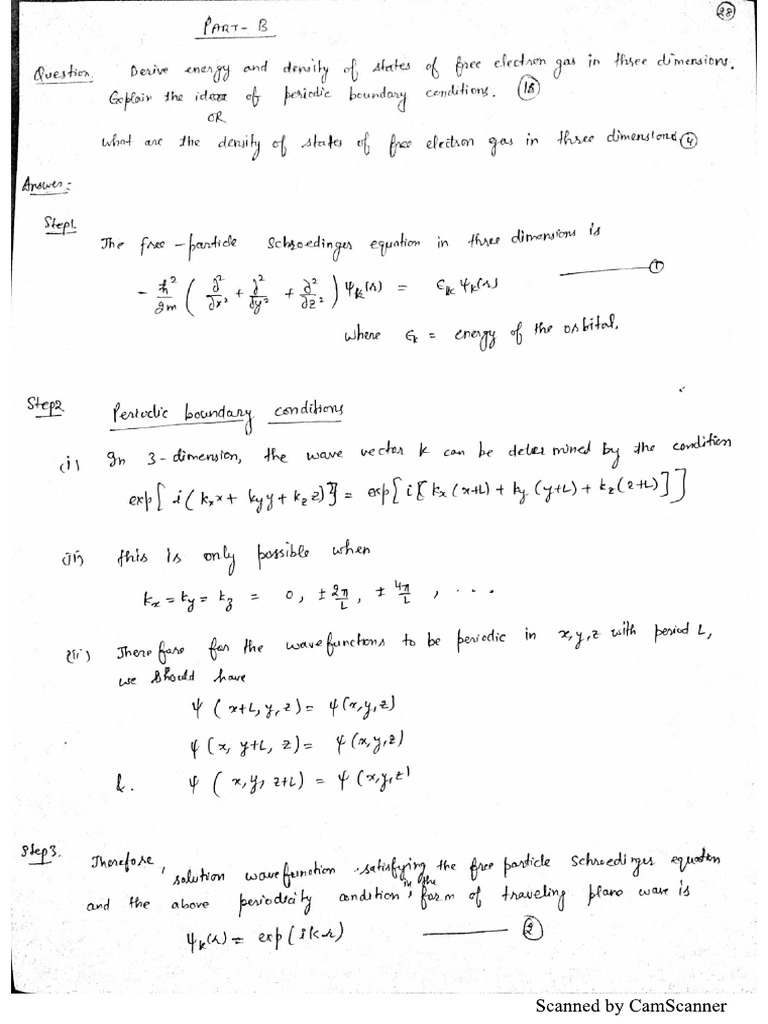 28
PART-B
Question. Derive energy and density of states of free electron gas in three dimensions.
Explain the idea of periodic boundary conditions. (18)
OR
What are the density of states of free electron gas in three dimensions (4)
Answer:
Step1.
The free-particle Schroedinger equation in three dimensions is
- ħ²/2m ( ∂²/∂x² + ∂²/∂y² + ∂²/∂z² ) ψk(r) = ϵk ψk(r) ——— (1)
where ϵk = energy of the orbital.
Step2 Periodic boundary conditions
(i) In 3-dimension, the wave vector k can be determined by the condition
exp[ i(kx x + ky y + kz z)] = exp[ i[ kx (x+L) + ky (y+L) + kz (z+L)]]
(ii) this is only possible when
kx = ky = kz = 0, ± 2π/L, ± 4π/L, ...
(iii) Therefore for the wavefunctions to be periodic in x,y,z with period L,
we should have
ψ (x+L, y, z) = ψ(x,y,z)
ψ(x, y+L, z) = ψ(x,y,z)
&. ψ (x,y, z+L) = ψ (x,y,z)
Step3. Therefore, solution wavefunction satisfying the free particle Schroedinger equation
and the above periodicity condition, in the form of traveling plane wave is
ψk(r) = exp(ik·r) ——— (2)
Scanned by CamScanner